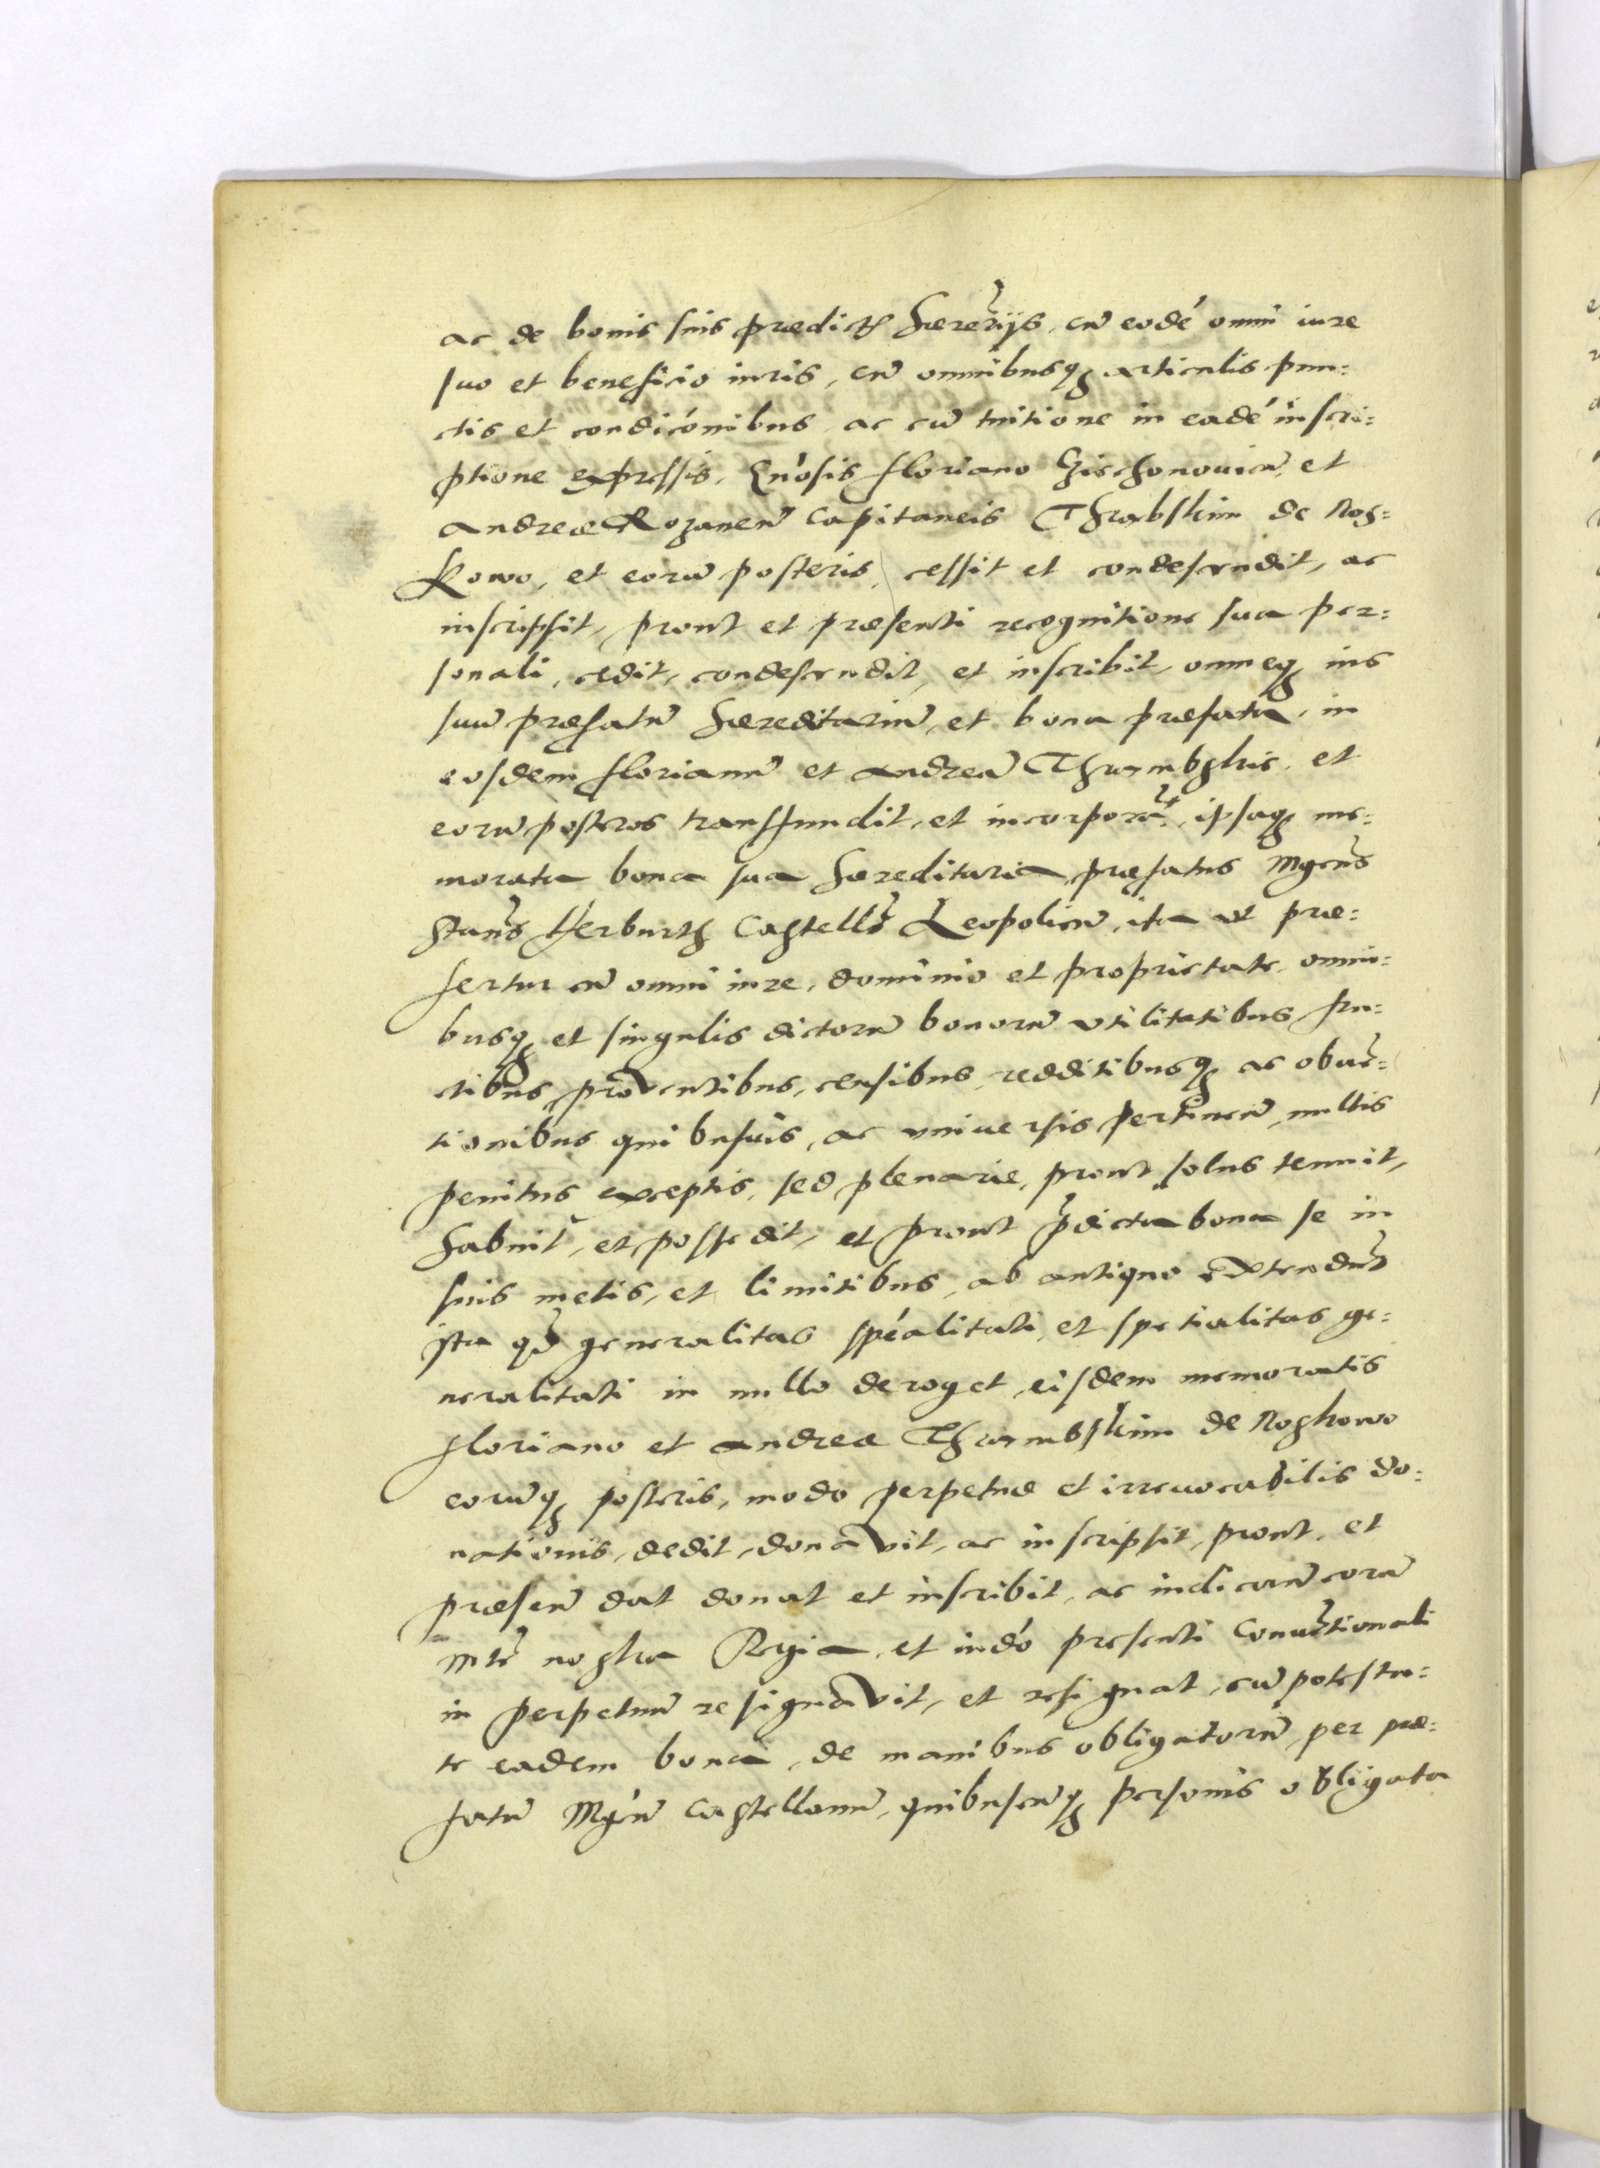 ac de bonis suis prædictis hæredrijs, cũ eodé omni iure
suo et beneficio iuris, cũ omnibusq articulis pun=
ctis et condicónibus ac cũ tuitione in eadé inscri=
ptione expressis, Gñosis Floriano Czischonovicẽ, et
Andreæ Rozanẽn Capitaneis Thrabskim de Nos=
kowo, et eorũ posteris, cessit et condescendit, ac
inscripsit, prout et præsenti recognitione sua per=
sonali, cedit, condescendit, et inscribit, omneq ius
suũ præfatũ hæreditariũ, et bona præfata, in
eosdem Florianũ et Andreã Thrambskie, et
eorũ posteros transfundit, et incorporat, ipsaq me=
morata bona sua hæreditaria, præfatus Mgcus
Stanis Herburth Castells Leopolien, ita ut præ=
fertur cũ omni iure, dominio et proprietate, omni=
busq et singulis dictorũ bonorũ utilitatibus fru=
ctibus, proventibus, censibus, redditibusq ac obven=
tionibus quibusvis, ac universis pertinen, nullis
penitus exceptis, sed plenarie, prout solus tenuit,
habuit, et possedit, et prout pdicta bona se in
suis metis, et limitibus, ab antiquo extendunt
ita qd generalitas spéalitati, et spetialitas ge=
neralitati in nullo deroget, eisdem memoratis
Floriano et Andreæ Thrambskim de Noskowo
eorũq posteris, modo perpetuæ et irrevocabilis do=
nationis, dedit, donavit, ac inscripsit, prout et
præsen dat donat et inscribit, ac indicarũ corã
Mte nostra Regia, et indó presenti Conventionali
in perpetuũ resignavit, et resignat, cũ potesta=
te eadem bona, de manibus obligatorũ, per præ=
fatũ Mgcũ Castellanũ, quibuscũq personis obligata